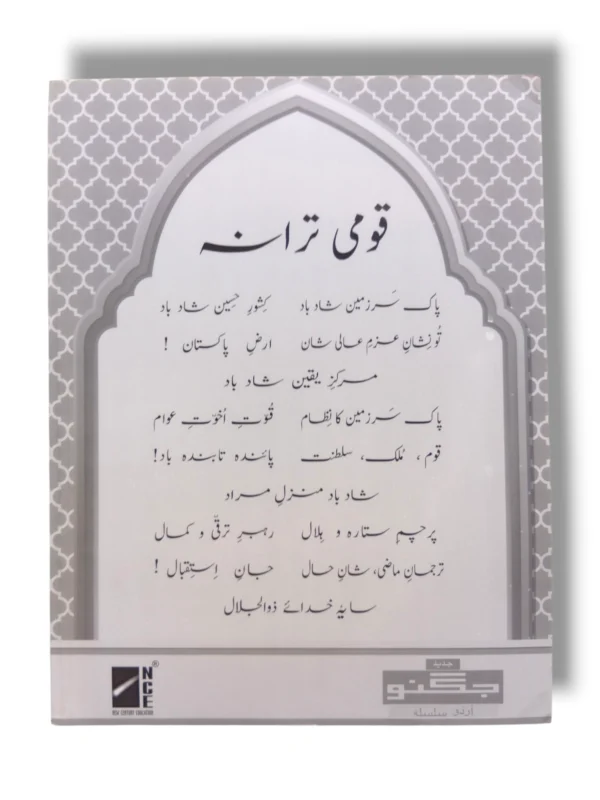 قومی ترانہ
پاک سَرزمین شاد باد کِشورِ حسین شاد باد
تُو نِشانِ عزمِ عالی شان ارضِ پاکستان !
مرکزِ یقین شاد باد
پاک سَرزمین کا نِظام قُوّتِ اُخوّتِ عوام
قوم ، مُلک، سلطنت پائندہ تابندہ باد!
شاد باد منزلِ مراد
پرچمِ ستارہ و ہِلال رہبرِ ترقّی و کمال
ترجمانِ ماضی، شانِ حال جانِ اِستِقبال !
سایۂ خدائے ذوالجلال
NCE®
NEW CENTURY EDUCATION
جدید
جگنو
اردو سلسلہ